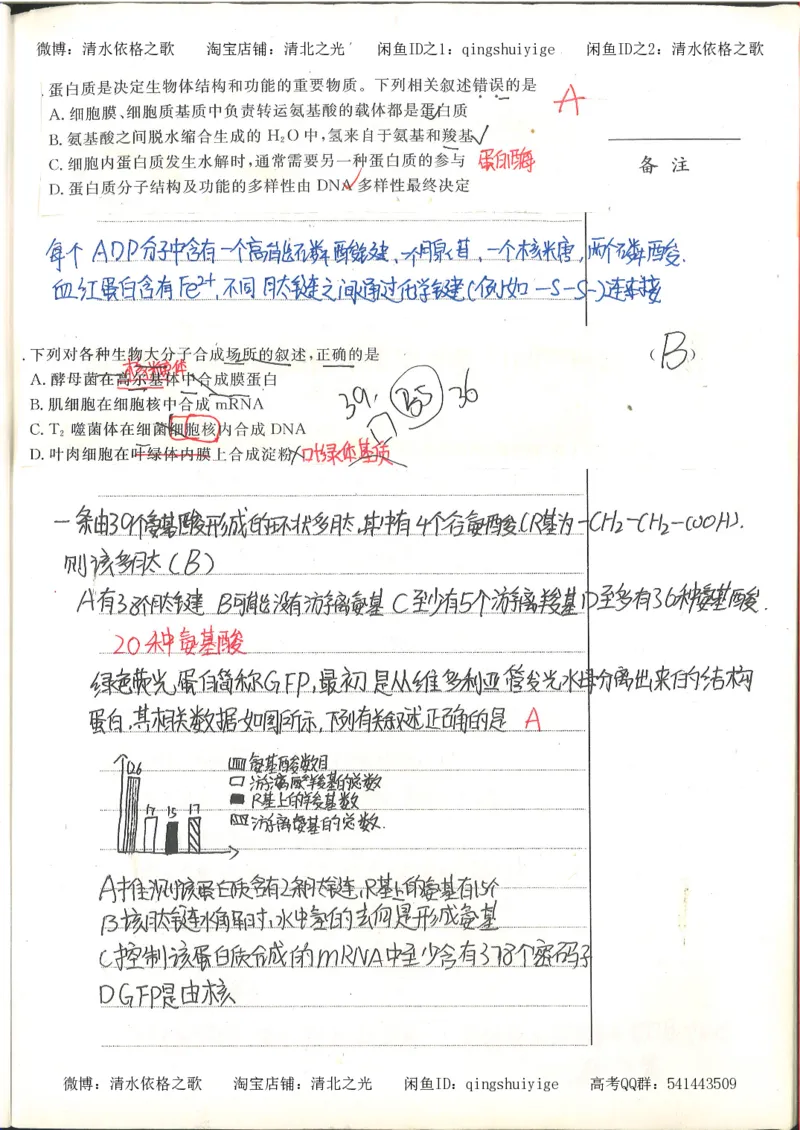 微博：清水依格之歌 淘宝店铺：清北之光 闲鱼ID之1：qingshuiyige 闲鱼ID之2：清水依格之歌
蛋白质是决定生物体结构和功能的重要物质。下列相关叙述错误的是 A
A. 细胞膜、细胞质基质中负责转运氨基酸的载体都是蛋白质
B. 氨基酸之间脱水缩合生成的 H₂O 中,氢来自于氨基和羧基
C. 细胞内蛋白质发生水解时,通常需要另一种蛋白质的参与 蛋白酶
备 注
D. 蛋白质分子结构及功能的多样性由 DNA 多样性最终决定
每个 ADP分子中含有一个高能磷酸键,一个腺苷,一个核糖,两个磷酸.
血红蛋白含有Fe²⁺,不同肽链之间通过化学键(例如 -S-S-)连接
下列对各种生物大分子合成场所的叙述,正确的是 (B)
核糖体
A. 酵母菌在高尔基体中合成膜蛋白
B. 肌细胞在细胞核中合成 mRNA
39. 35 36
C. T₂ 噬菌体在细菌细胞核内合成 DNA
D. 叶肉细胞在叶绿体内膜上合成淀粉 叶绿体基质
一条由39个氨基酸形成的环状多肽,其中有4个谷氨酸(R基为-CH₂-CH₂-COOH).
则该多肽(B)
A有38个肽键 B可能没有游离氨基 C至少有5个游离羧基 D至多有36种氨基酸.
20种氨基酸
绿色荧光蛋白简称GFP,最初是从维多利亚管发光水母分离出来的结构
蛋白,其相关数据如图所示,下列有关叙述正确的是 A
126 17 15 17
氨基酸数目
游离羧基的总数
R基上的羧基数
游离氨基的总数.
A推测该蛋白质含有2条肽链,R基上的氨基有15个
B该肽链水解时,水中氢的去向是形成氨基
C控制该蛋白质合成的mRNA中至少含有378个密码子
D GFP是由核
微博：清水依格之歌 淘宝店铺：清北之光 闲鱼ID：qingshuiyige 高考QQ群：541443509